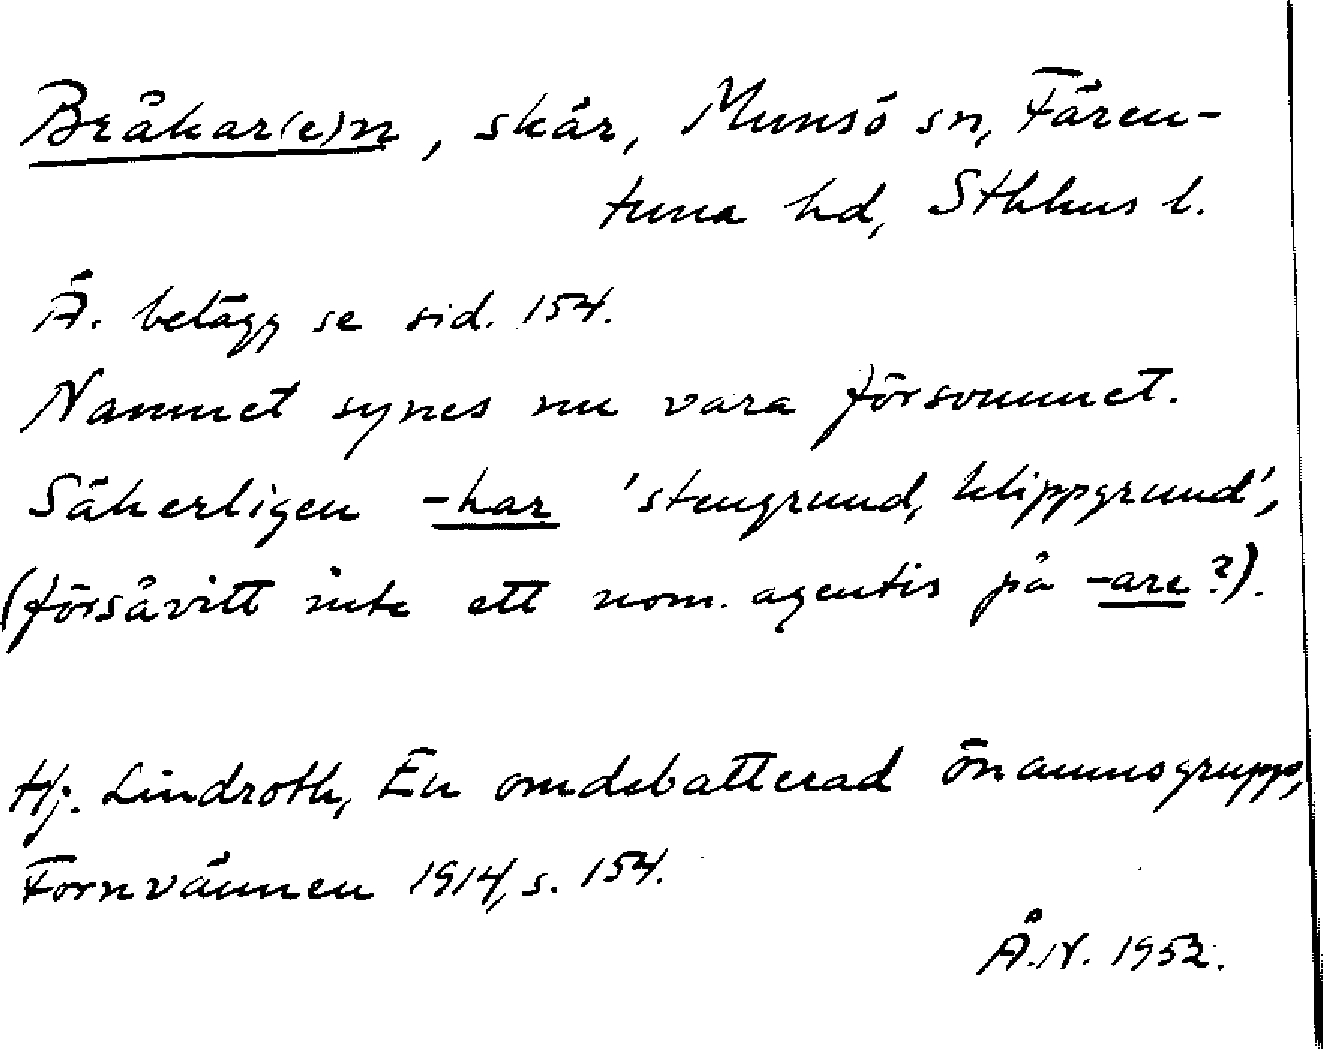 Bråkar(e)n, skär, Munsö sn, Fären-
tuna hd, Sthlms l.
Ä. belägg se sid. 154.
Namnet synes nu vara försvunnet.
Säkerligen -har 'stengrund, klippgrund',
(försåvitt inte ett nom. agentis på -are?).
Hj. Lindroth, En omdebatterad önamnsgrupp,
Fornvännen 1914, s. 154.
Å.N. 1952.